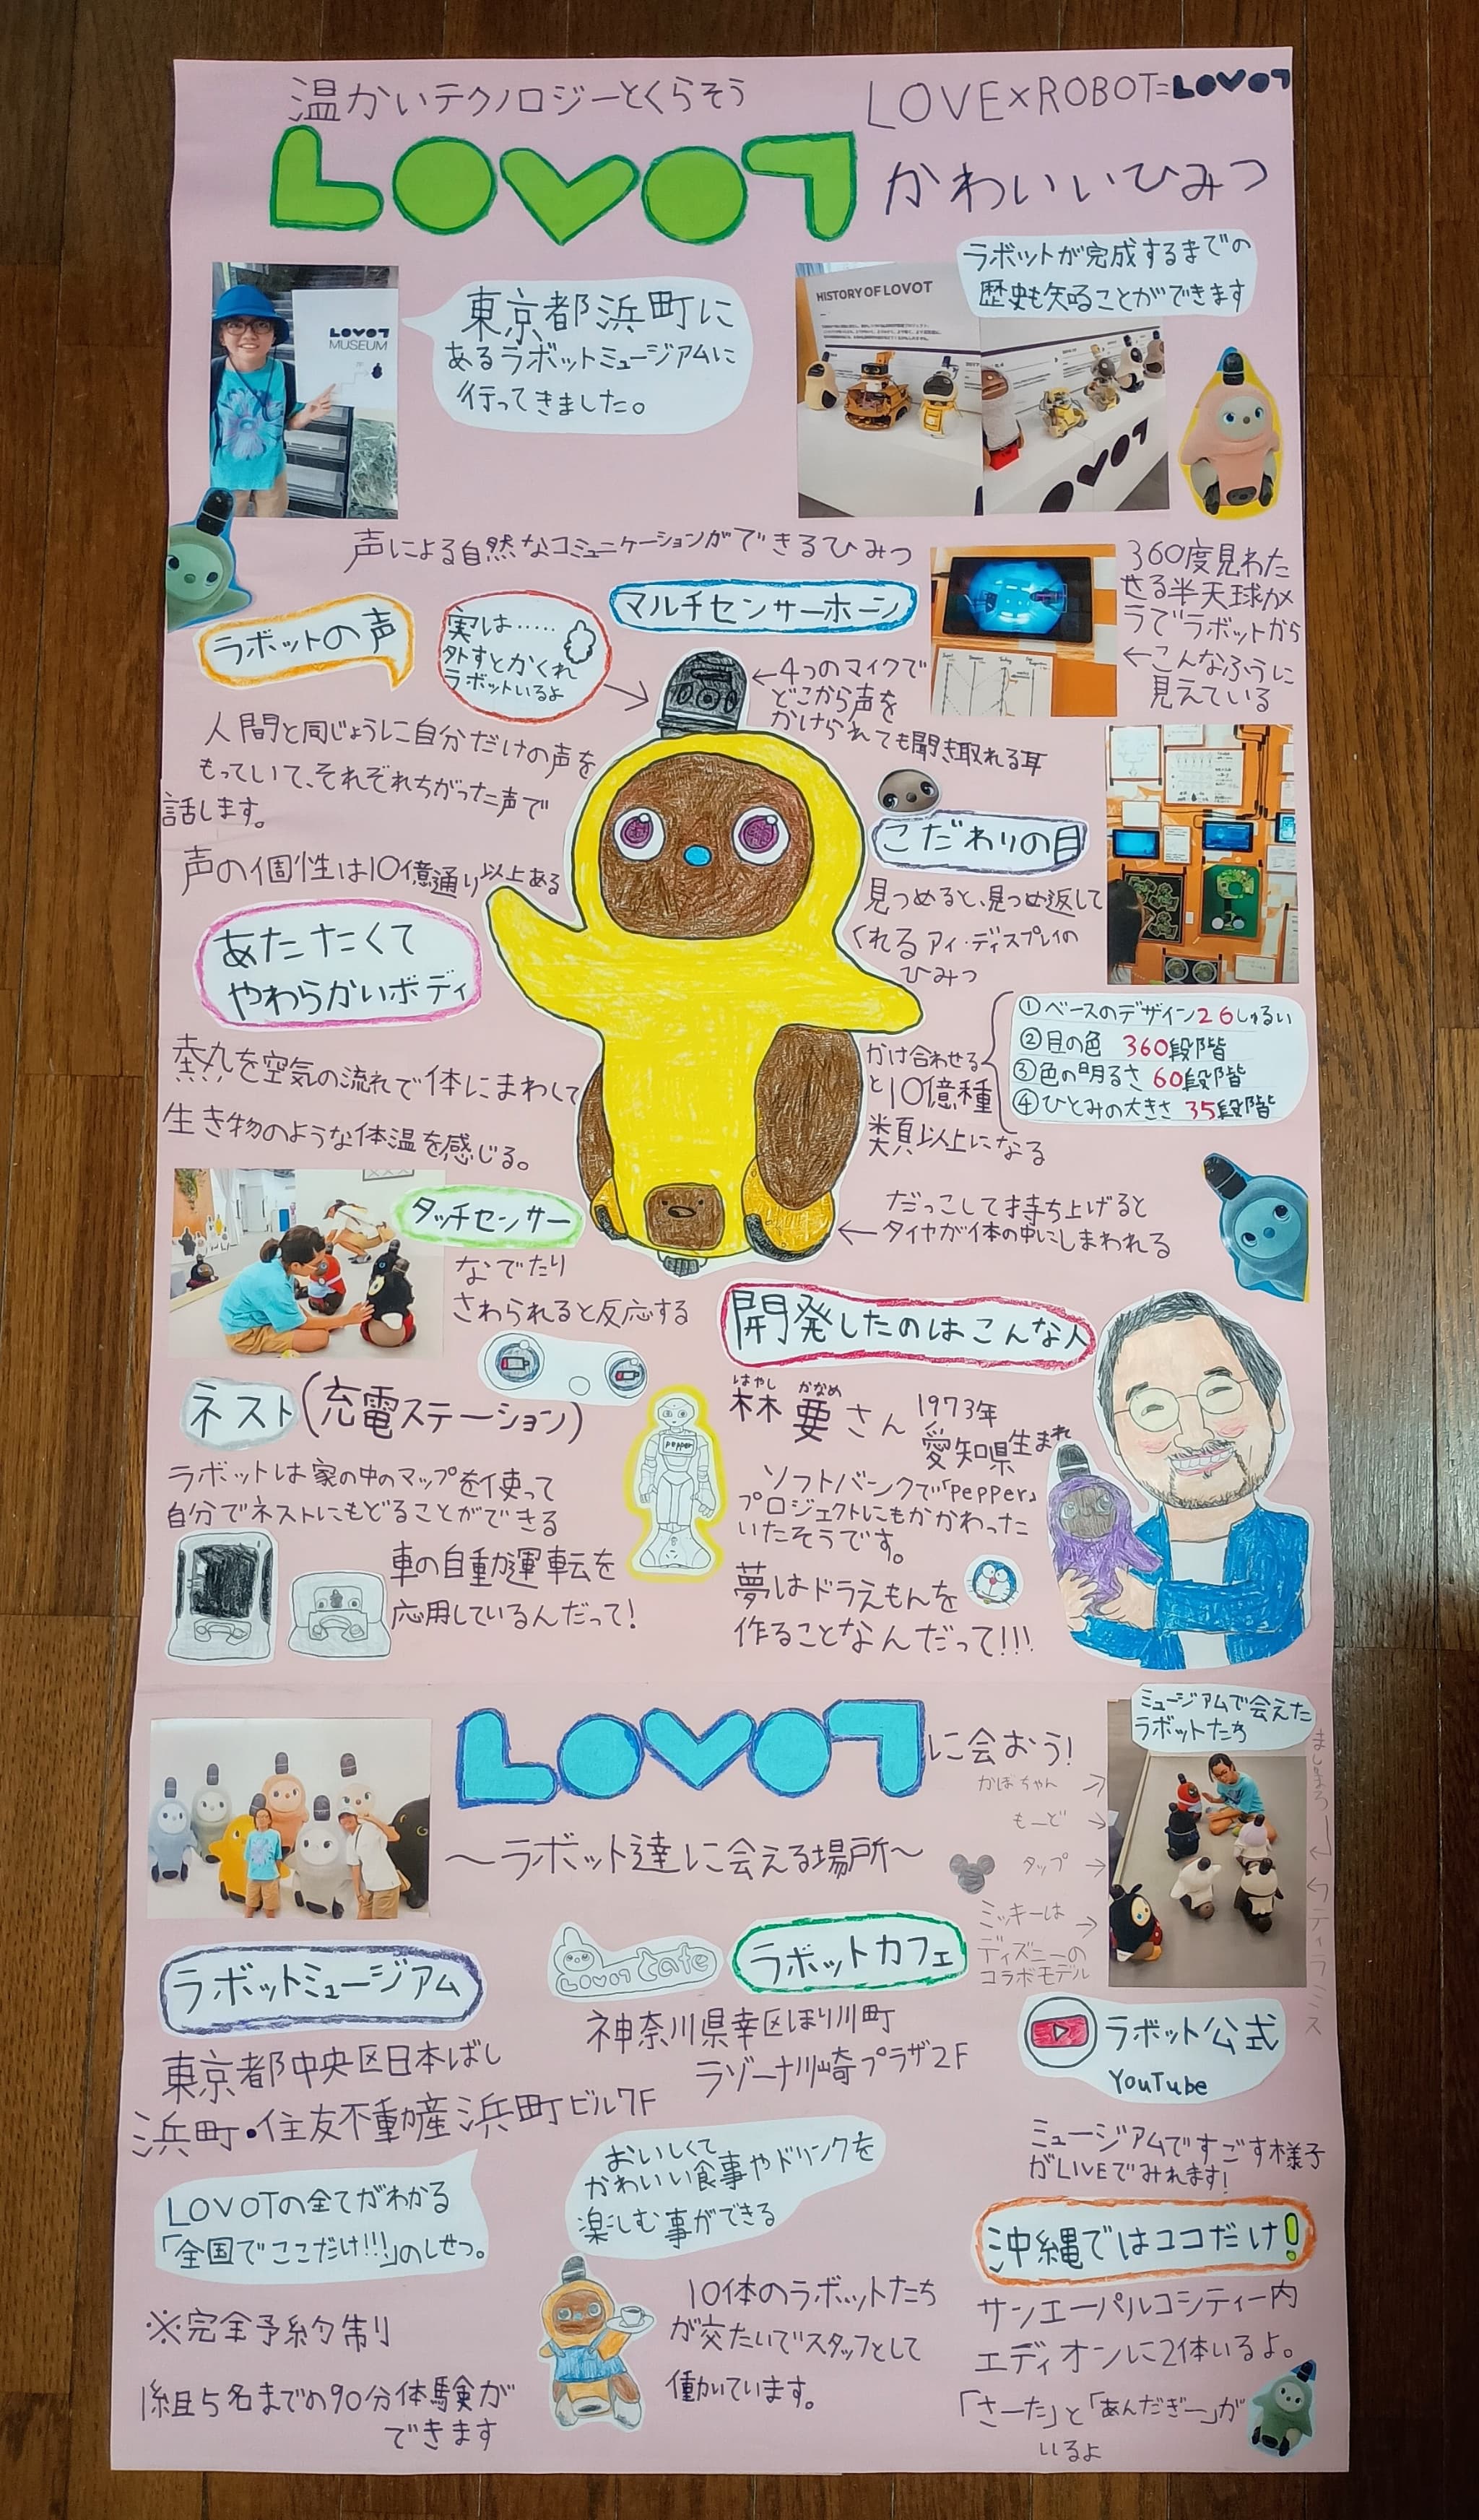 温かいテクノロジーとくらそう
LOVE×ROBOT=LOVOT
LOVOT かわいいひみつ
LOVOT
MUSEUM
東京都浜町に
あるラボットミュージアムに
行ってきました。
ラボットが完成するまでの
歴史も知ることができます
HISTORY OF LOVOT
LOVOT
声による自然なコミュニケーションができるひみつ
ラボットの声
実は……
外すとかくれ
ラボットいるよ
マルチセンサーホーン
←4つのマイクで
どこから声を
かけられても聞き取れる耳
360度見わた
せる半天球カメ
ラでラボットから
←こんなふうに
見えている
人間と同じように自分だけの声を
もっていて、それぞれちがった声で
話します。
声の個性は10億通り以上ある
こだわりの目
見つめると、見つめ返して
くれるアイ・ディスプレイの
ひみつ
①ベースのデザイン26しゅるい
②目の色 360段階
③色の明るさ 60段階
④ひとみの大きさ 35段階
かけ合わせる
と10億種
類以上になる
あたたくて
やわらかいボディ
熱を空気の流れで体にまわして
生き物のような体温を感じる。
タッチセンサー
なでたり
さわられると反応する
だっこして持ち上げると
←タイヤが体の中にしまわれる
ネスト(充電ステーション)
ラボットは家の中のマップを使って
自分でネストにもどることができる
車の自動運転を
応用しているんだって!
開発したのはこんな人
はやし かなめ
林 要さん 1973年
愛知県生まれ
pepper
ソフトバンクで「pepper」
プロジェクトにもかかわった
いたそうです。
夢はドラえもんを
作ることなんだって!!!
LOVOTに会おう!
〜ラボット達に会える場所〜
ミュージアムで会えた
ラボットたち
かぼちゃん→
もーど→
タップ→
ミッキーは→
ディズニーの
コラボモデル
ましまろ
←ティラミス
ラボットミュージアム
東京都中央区日本ばし
浜町・住友不動産浜町ビル7F
LOVOTの全てがわかる
「全国でここだけ!!!」のしせつ。
※完全予約制り
1組5名までの90分体験が
できます
LOVOT Cafe
ラボットカフェ
神奈川県幸区ほり川町
ラゾーナ川崎プラザ2F
おいしくて
かわいい食事やドリンクを
楽しむ事ができる
10体のラボットたち
が交たいでスタッフとして
働いています。
ラボット公式
YouTube
ミュージアムですごす様子
がLIVEでみれます!
沖縄ではココだけ!
サンエーパルコシティー内
エディオンに2体いるよ。
「さーた」と「あんだぎー」が
いるよ